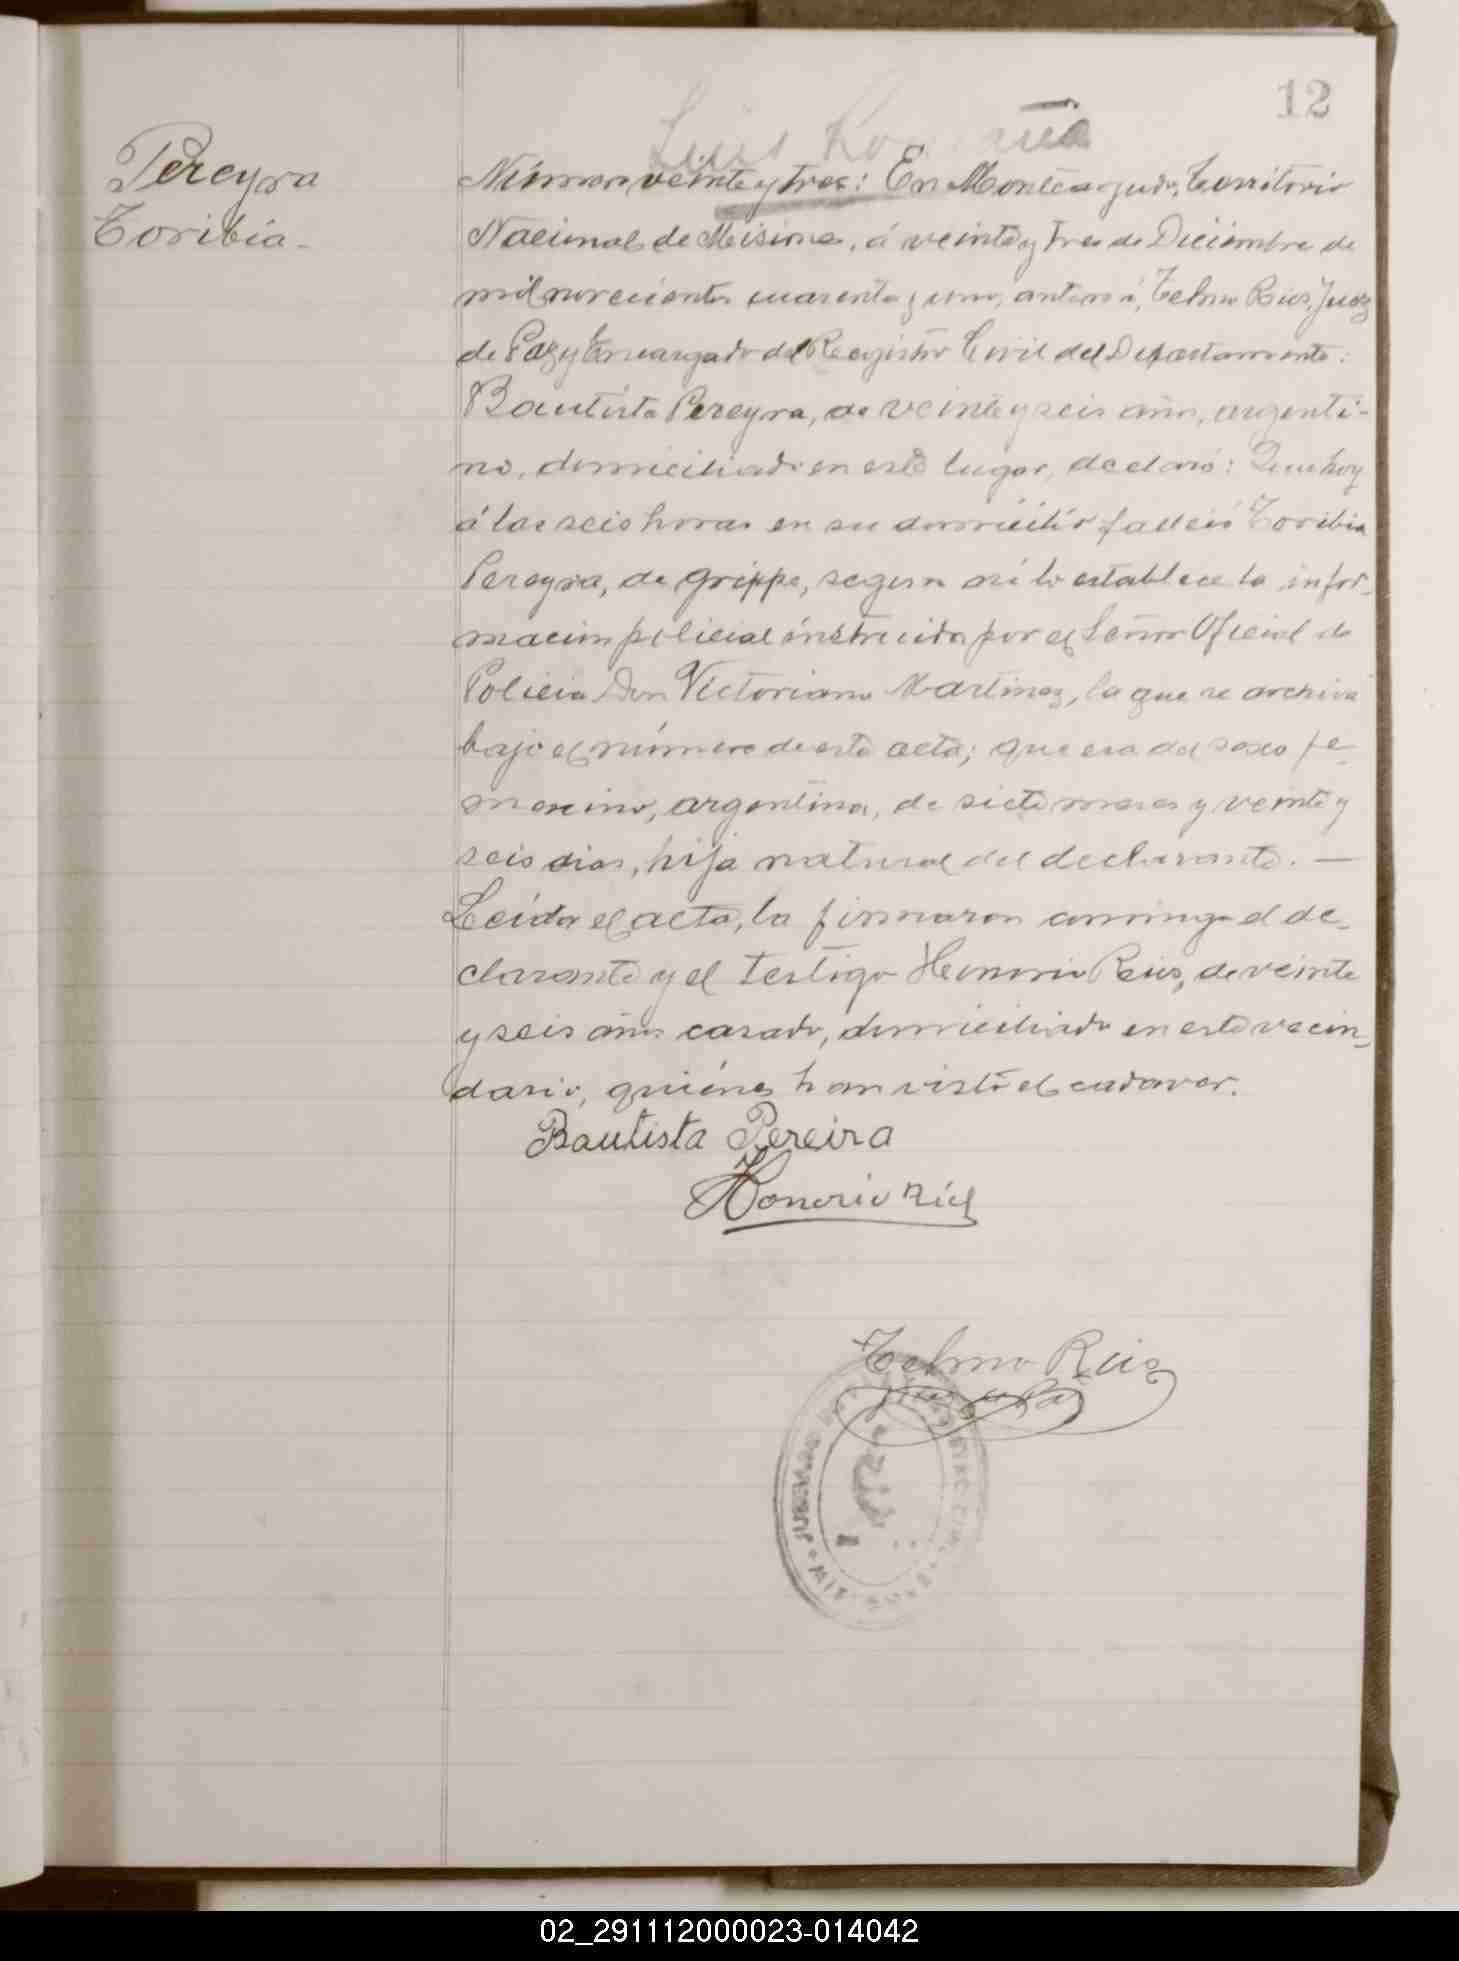 12
Luis
Pereyra
Toribia.
Número veinte y tres: En Monteagudo, Territorio
Nacional de Misiones, á veinte y tres de Diciembre de
mil novecientos cuarenta y uno, ante mí, Telmo Rios, Juez
de Paz y Encargado del Registro Civil del Departamento:
Bautista Pereyra, de veinte y seis años, argenti-
no, domiciliado en este lugar, declaró: Que hoy
á las seis horas en su domicilio falleció Toribia
Pereyra, de grippe, segun así lo establece la infor-
macion policial instruida por el Señor Oficial de
Policia Don Victoriano Martinez, la que se archiva
bajo el número de esta acta; que era del sexo fe-
menino, argentina, de siete meses y veinte y
seis dias, hija natural del declarante. —
Leida el acta, la firmaron conmigo el de-
clarante y el testigo Honorio Rios, de veinte
y seis años casado, domiciliado en este vecin-
dario, quiénes han visto el cadaver.
Bautista Pereira
Honorio Rios
Telmo Rios
Juez de Paz
02_291112000023-014042